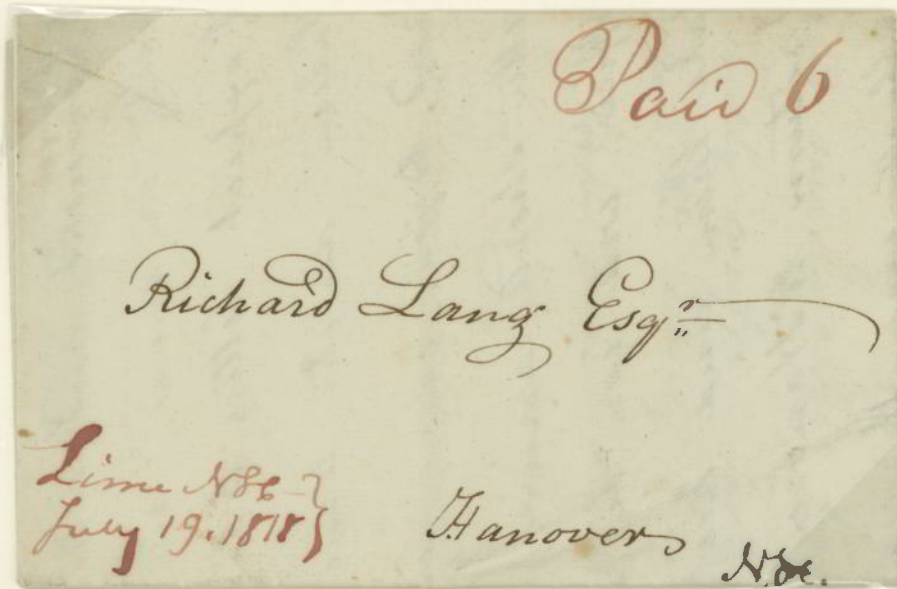 Paid 6
Richard Lang Esqr
Lime NH
July 19. 1818
Hanover
N.H.